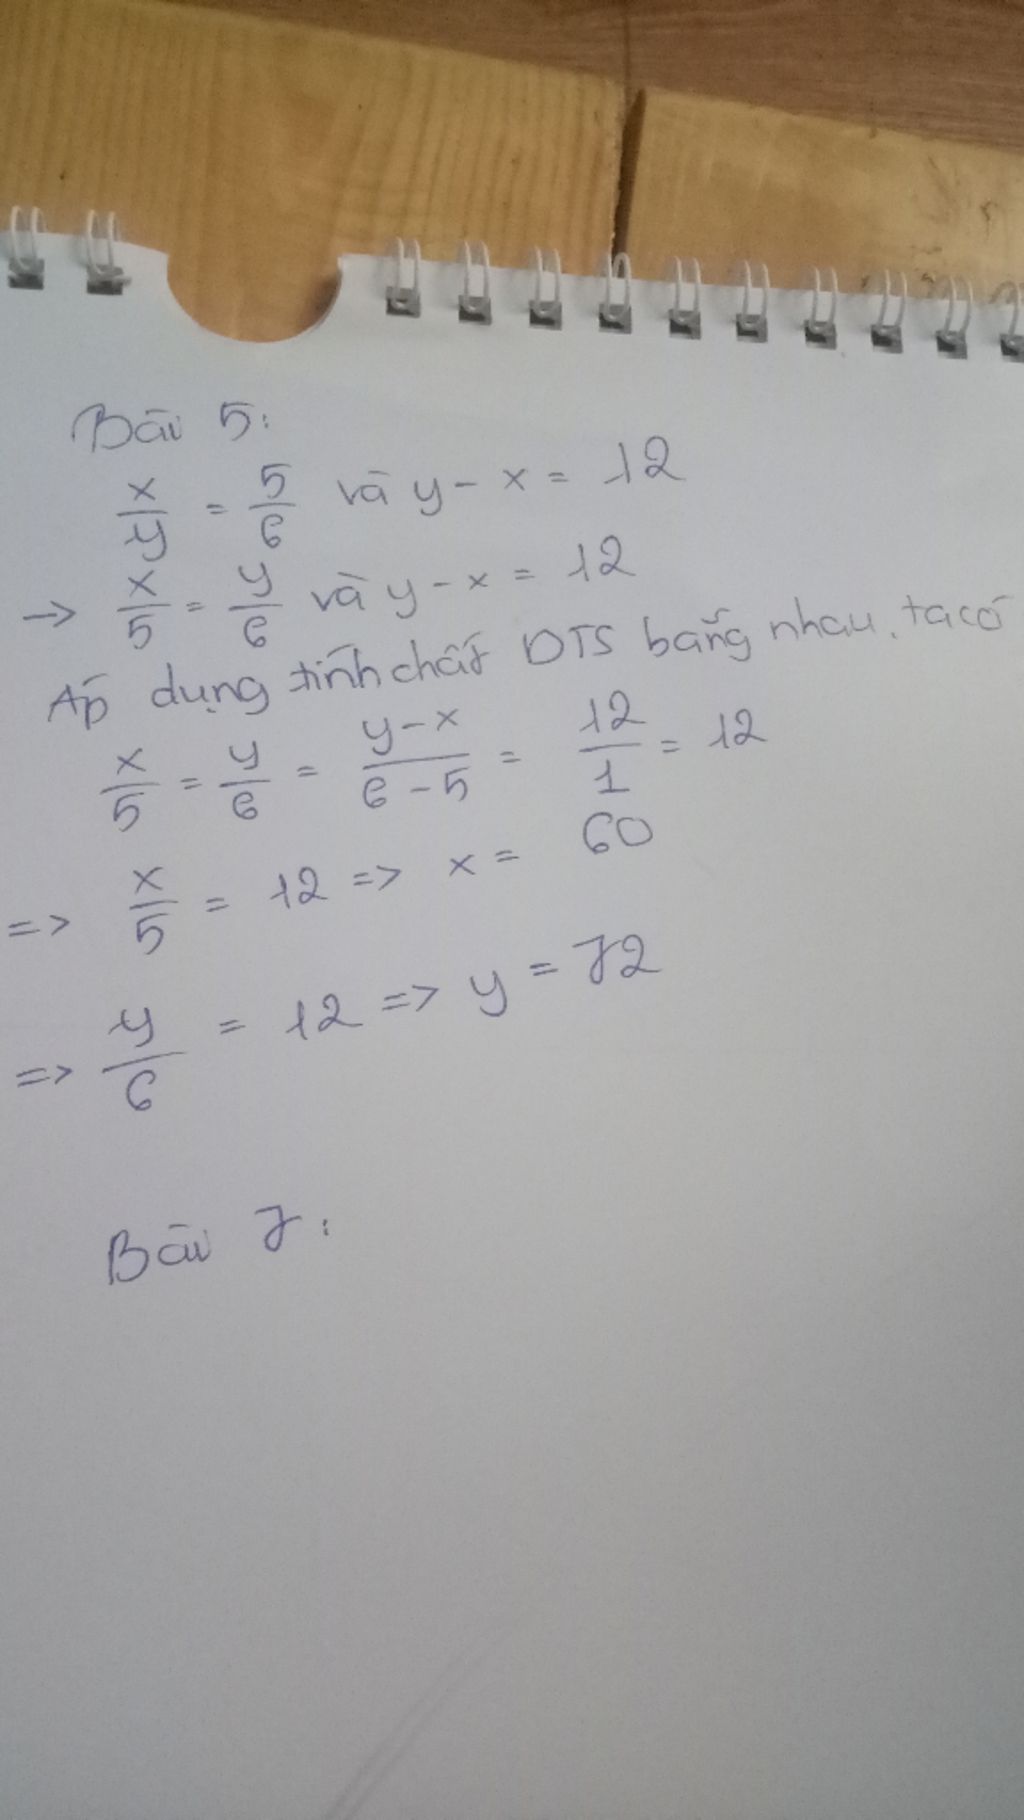 Bài 5:
x/y = 5/6 và y - x = 12
→ x/5 = y/6 và y - x = 12
Áp dụng tính chất DTS bằng nhau, ta có
x/5 = y/6 = y-x/6-5 = 12/1 = 12
=> x/5 = 12 => x = 60
=> y/6 = 12 => y = 72
Bài 7: